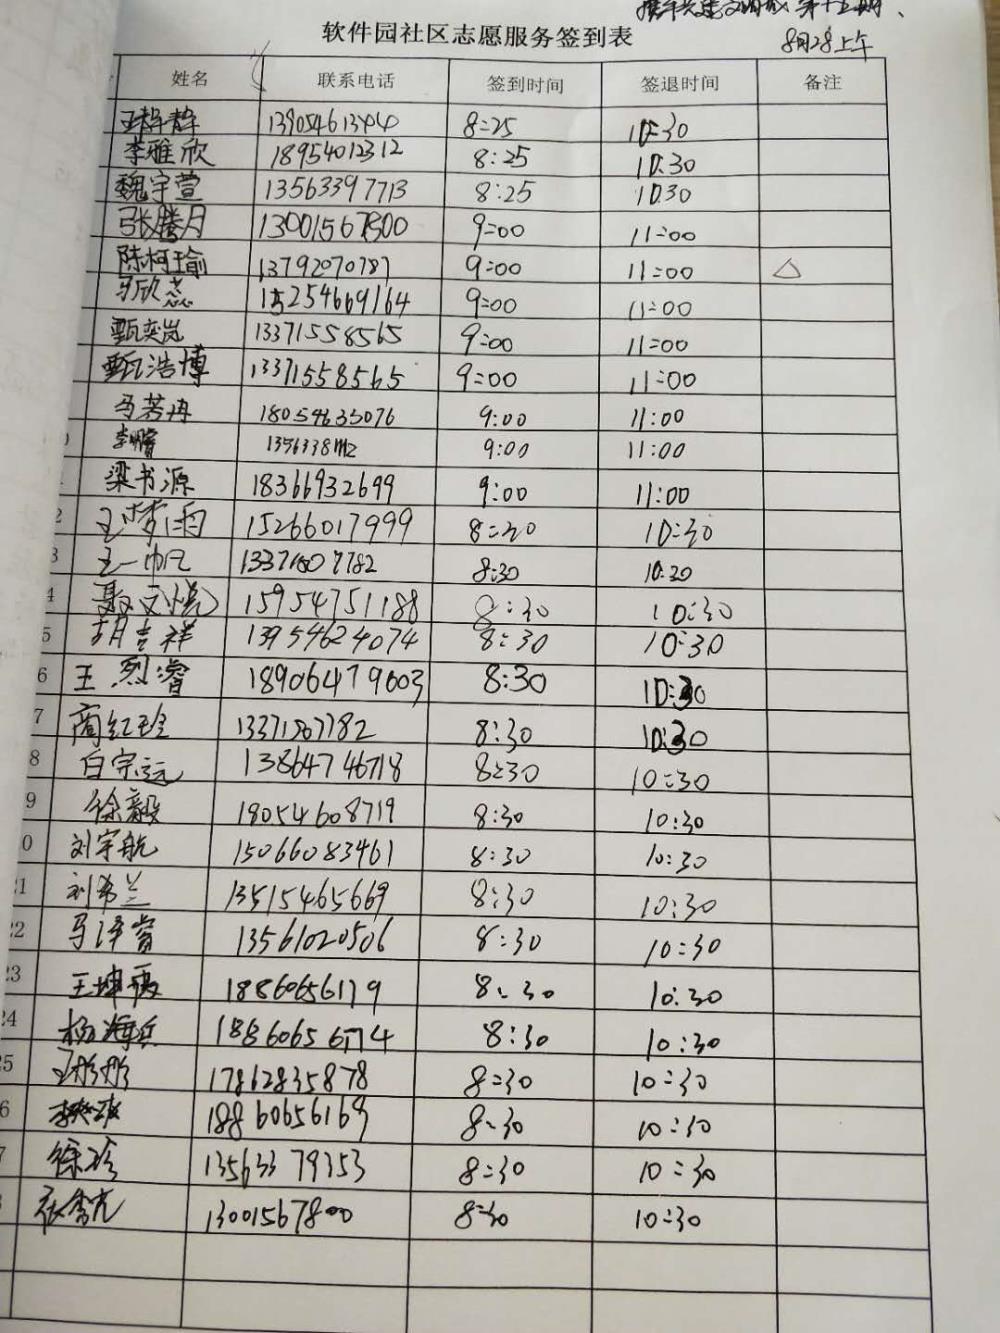 第十五期、
软件园社区志愿服务签到表
8月28上午
姓名 联系电话 签到时间 签退时间 备注
王静静 8:25 10:30
李雅欣 18954012312 8:25 10:30
魏宇萱 13563397713 8:25 10:30
张腾月 13001567800 9:00 11:00
陈柯瑜 13792070787 9:00 11:00 △
马欣蕊 15254669164 9:00 11:00
甄奕岚 13371558565 9:00 11:00
甄浩博 13371558565 9:00 11:00
马若冉 18054635076 9:00 11:00
9:00 11:00
梁书源 18366932699 9:00 11:00
2 王梦雨 15266017999 8:30 10:30
3 王一帆 8:30 10:30
4 聂文悦 15954751188 8:30 10:30
5 胡吉祥 13954624074 8:30 10:30
6 王烈睿 18906479603 8:30 10:30
7 商红 8:30 10:30
8 白宗远 13864746718 8:30 10:30
9 徐毅 18054608719 8:30 10:30
0 刘宇航 15066083461 8:30 10:30
21 刘希兰 13515465669 8:30 10:30
22 马泽睿 13561020506 8:30 10:30
23 王坤禹 8:30 10:30
24 杨海兵 8:30 10:30
25 王彤彤 17862835878 8:30 10:30
6 18860656169 8:30 10:30
7 徐珍 13563379353 8:30 10:30
13001567800 8:30 10:30